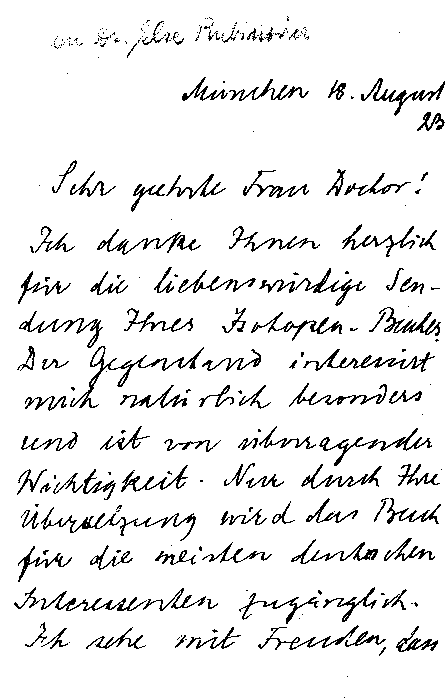 an Dr. Else
München 18. August
23
Sehr geehrte Frau Doctor!
Ich danke Ihnen herzlich
für die liebenswürdige Sen-
dung Ihres Isotopen-Buches.
Der Gegenstand interessirt
mich natürlich besonders
und ist von überragender
Wichtigkeit. Nur durch Ihre
Übersetzung wird das Buch
für die meisten deutschen
Interessenten zugänglich.
Ich sehe mit Freuden, dass